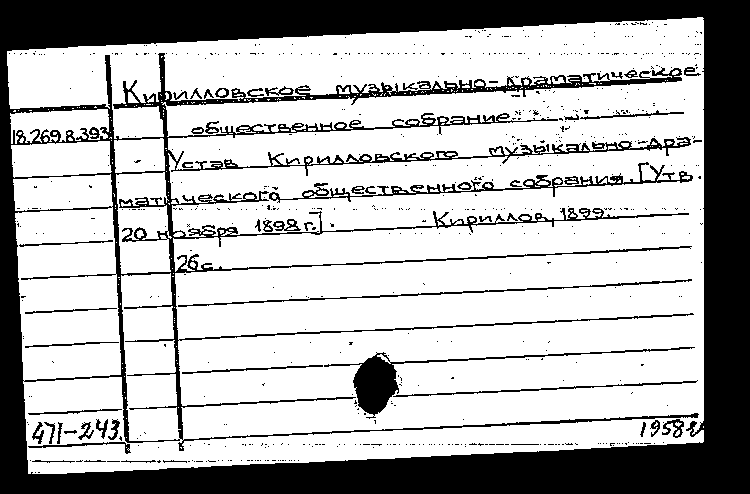 Кирилловское музыкально-драматическое
18.269.8.393. общественное собрание.
Устав Кирилловского музыкально-дра-
матического общественного собрания. [Утв.
20 ноября 1898 г.]. - Кириллов, 1899.
26 с.
471-243.
1958г